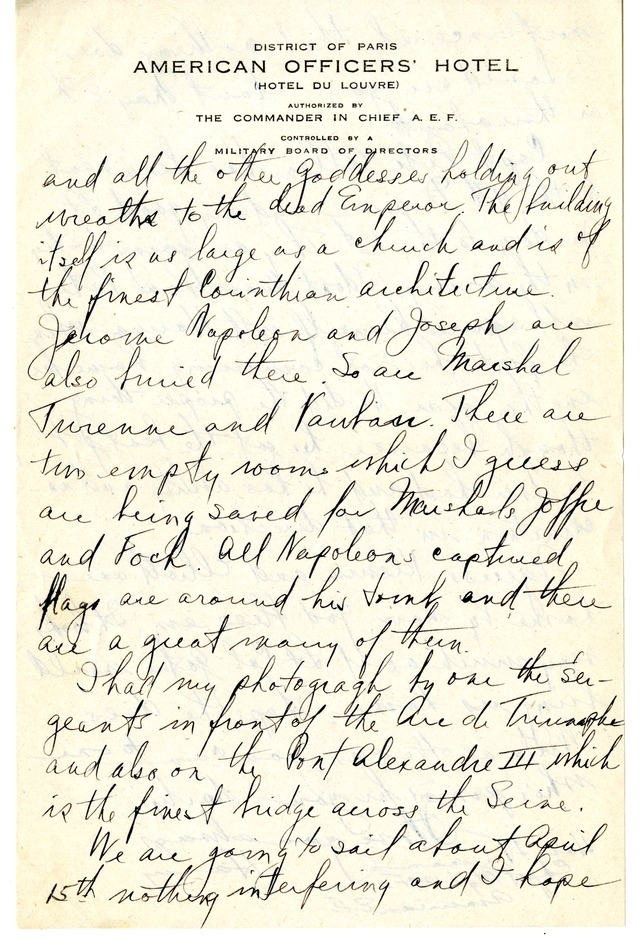 DISTRICT OF PARIS
AMERICAN OFFICERS' HOTEL
(HOTEL DU LOUVRE)
AUTHORIZED BY
THE COMMANDER IN CHIEF A. E. F.
CONTROLLED BY A
MILITARY BOARD OF DIRECTORS
and all the other Goddesses holding out
wreaths to the dead Emperor. The building
itself is as large as a church and is of
the finest Corinthian architecture.
Jerome Napoleon and Joseph are
also buried there. So are Marshal
Turenne and Vauban. There are
two empty rooms which I guess
are being saved for Marshals Joffre
and Foch. All Napoleons captured
flags are around his tomb and there
are a great many of them.
I had my photograph by one the Ser-
geants in front of the Arc de Triumphe
and also on the Pont Alexandre III which
is the finest bridge across the Seine.
We are going to sail about April
15th nothing interfering and I hope